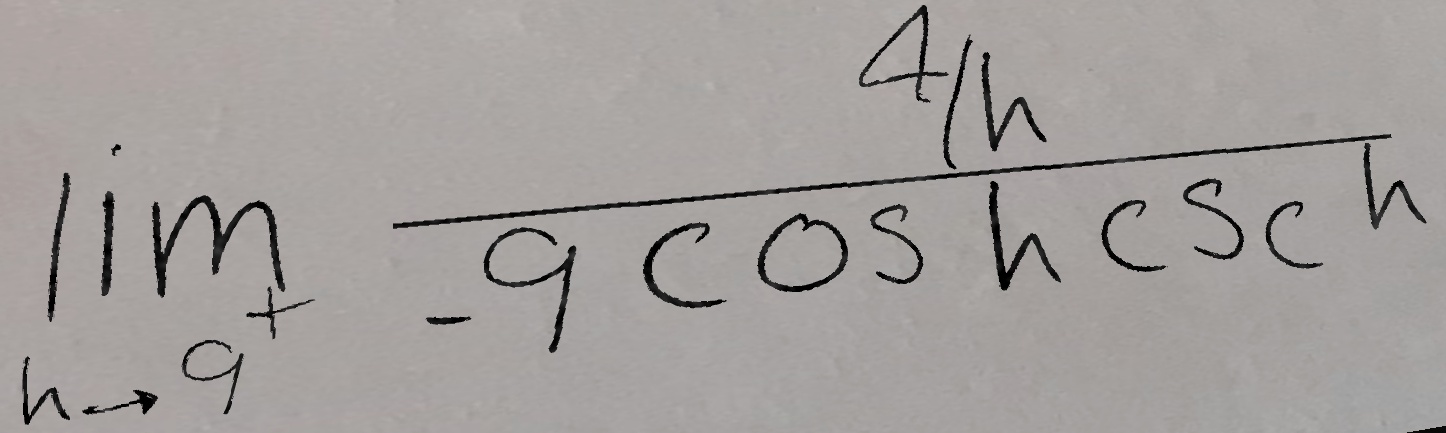 \lim_{h \to 9^+} \frac{4/h}{-9 \cos h \csc h}